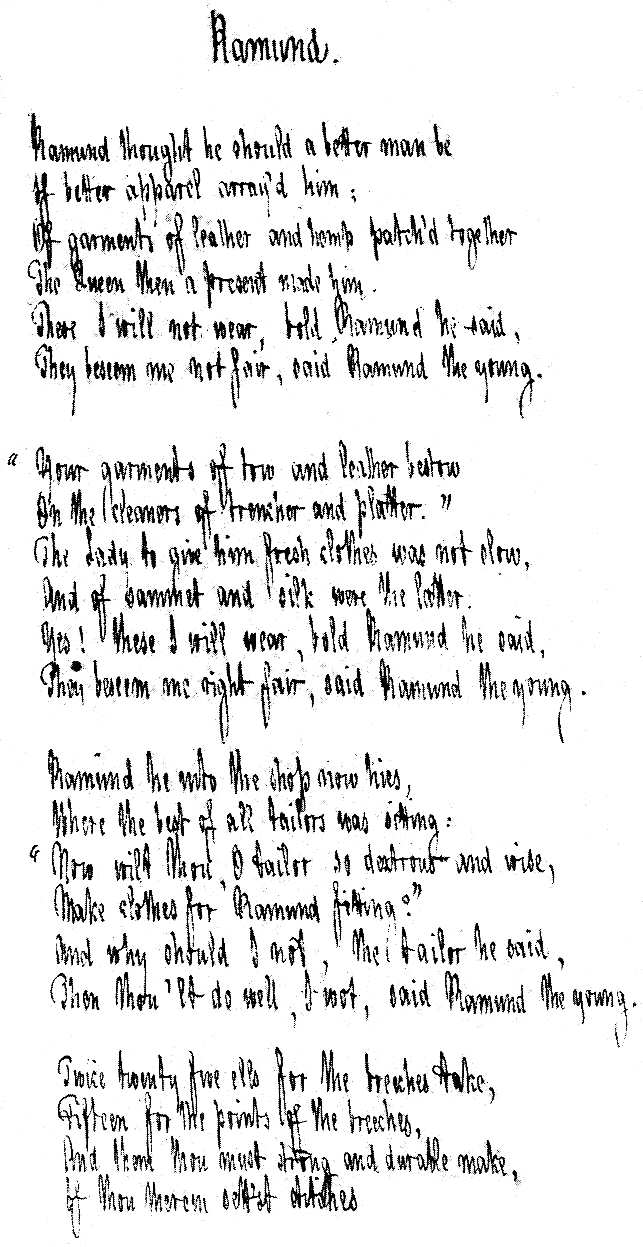 Ramund.
Ramund thought he should a better man be
If better apparel array'd him;
Of garments of leather and hemp patch'd together
The Queen then a present made him.
These I will not wear, bold Ramund he said,
They beseem me not fair, said Ramund the young.
"Your garments of tow and leather bestow
On the cleaners of trencher and platter."
The Lady to give him fresh clothes was not slow,
And of sammet and silk were the latter.
Yes! these I will wear, bold Ramund he said,
They beseem me right fair, said Ramund the young.
Ramund he into the shop now hies,
Where the best of all tailors was sitting:
"Now wilt thou, O tailor so dextrous and wise,
Make clothes for Ramund fitting?"
And why should I not, the tailor he said,
Then thou'lt do well, I wot, said Ramund the young.
Twice twenty five ells for the breeches take,
Fifteen for the points of the breeches,
And them thou must strong and durable make,
If thou therein sett'st stitches